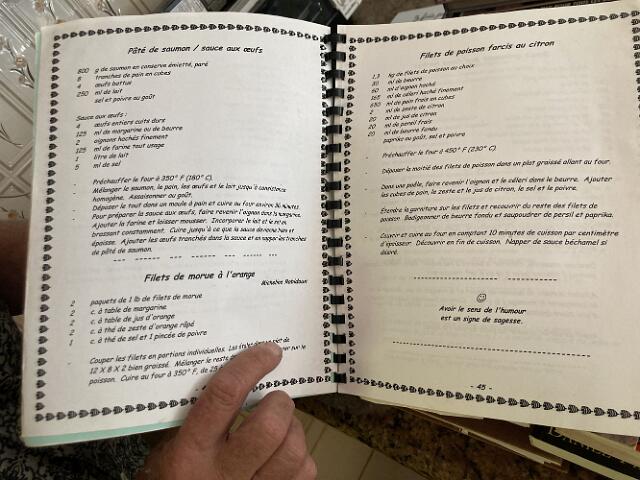 Pâté de saumon / sauce aux œufs
800 g de saumon en conserve émietté, paré
8 tranches de pain en cubes
4 œufs battus
250 ml de lait
sel et poivre au goût
Sauce aux œufs :
4 œufs entiers cuits durs
125 ml de margarine ou de beurre
2 oignons hachés finement
125 ml de farine tout usage
1 litre de lait
5 ml de sel
- Préchauffer le four à 350° F (180° C).
- Mélanger le saumon, le pain, les œufs et le lait jusqu'à consistance
homogène. Assaisonner au goût.
- Déposer le tout dans un moule à pain et cuire au four environ 30 minutes.
- Pour préparer la sauce aux œufs, faire revenir l'oignon dans la margarine.
- Ajouter la farine et laisser mousser. Incorporer le lait et le sel en
brassant constamment. Cuire jusqu'à ce que la sauce devienne bien
épaisse. Ajouter les œufs tranchés dans la sauce et en napper les tranches
de pâté de saumon.
Filets de morue à l'orange
Micheline Robidoux
2 paquets de 1 lb de filets de morue
2 c. à table de margarine
2 c. à table de jus d'orange
2 c. à thé de zeste d'orange râpé
1 c. à thé de sel et 1 pincée de poivre
- Couper les filets en portions individuelles. Les étaler dans un plat de
12 X 8 X 2 bien graissé. Mélanger le reste sur le
poisson. Cuire au four à 350° F, de 25
Filets de poisson farcis au citron
1,3 kg de filets de poisson au choix
30 ml de beurre
60 ml d'oignon haché
165 ml de céleri haché finement
650 ml de pain frais en cubes
2 ml de zeste de citron
20 ml de jus de citron
20 ml de persil frais
20 ml de beurre fondu
paprika au goût, sel et poivre
- Préchauffer le four à 450° F (230° C)
- Déposer la moitié des filets de poisson dans un plat graissé allant au four.
- Dans une poêle, faire revenir l'oignon et le céleri dans le beurre. Ajouter
les cubes de pain, le zeste et le jus de citron, le sel et le poivre.
- Étendre la garniture sur les filets et recouvrir du reste des filets de
poisson. Badigeonner de beurre fondu et saupoudrer de persil et paprika.
- Couvrir et cuire au four en comptant 10 minutes de cuisson par centimètre
d'épaisseur. Découvrir en fin de cuisson. Napper de sauce béchamel si
désiré.
Avoir le sens de l'humour
est un signe de sagesse.
- 45 -